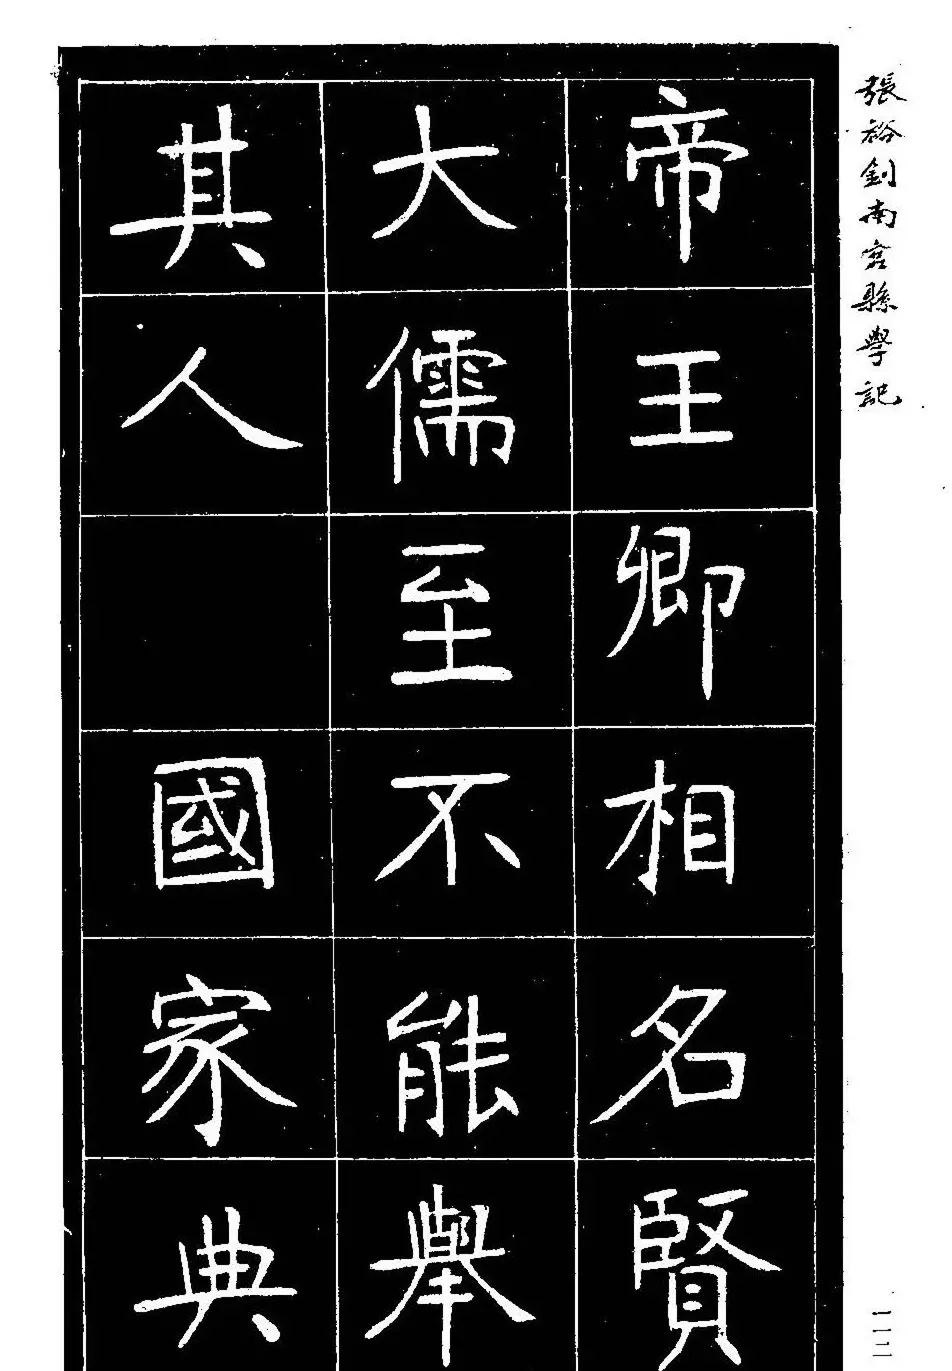 張裕釗南宮縣學記
帝王卿相名賢
大儒至不能舉
其人國家典
一一二